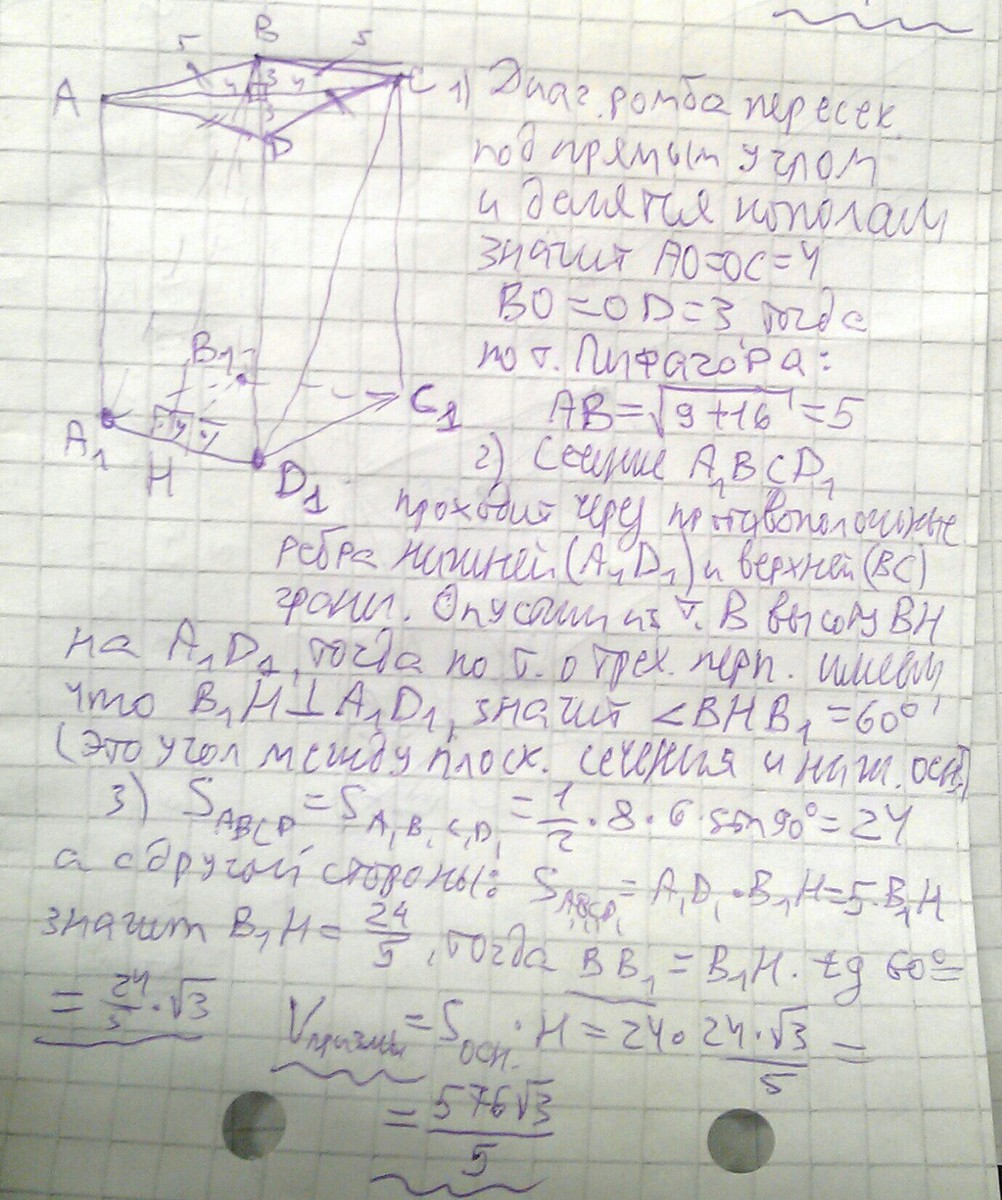 B
5
5
A
4
3
4
3
C
D
B₁
A₁
H
D₁
C₁
1) Диаг. ромба пересек.
под прямым углом
и делятся пополам
значит AO=OC=4
BO=OD=3 тогда
по т. Пифагора:
AB=√9+16=5
2) Сечение A₁BCD₁
проходит через противоположные
ребра нижней (A₁D₁) и верхней (BC)
грани. Опустим из т. B высоту BH
на A₁D₁, тогда по т. о трех. перп. имеем,
что B₁H⊥A₁D₁, значит ∠BHB₁=60°
(это угол между плоск. сечения и ниж. осн.)
3) S_ABCD=S_A₁B₁C₁D₁=1/2·8·6·sin90°=24
а с другой стороны: S_A₁B₁C₁D₁=A₁D₁·B₁H=5·B₁H
значит B₁H=24/5, тогда BB₁=B₁H·tg 60°=
=24/5·√3 Vпризмы=Sосн.·H=24·24·√3/5=
=576√3/5